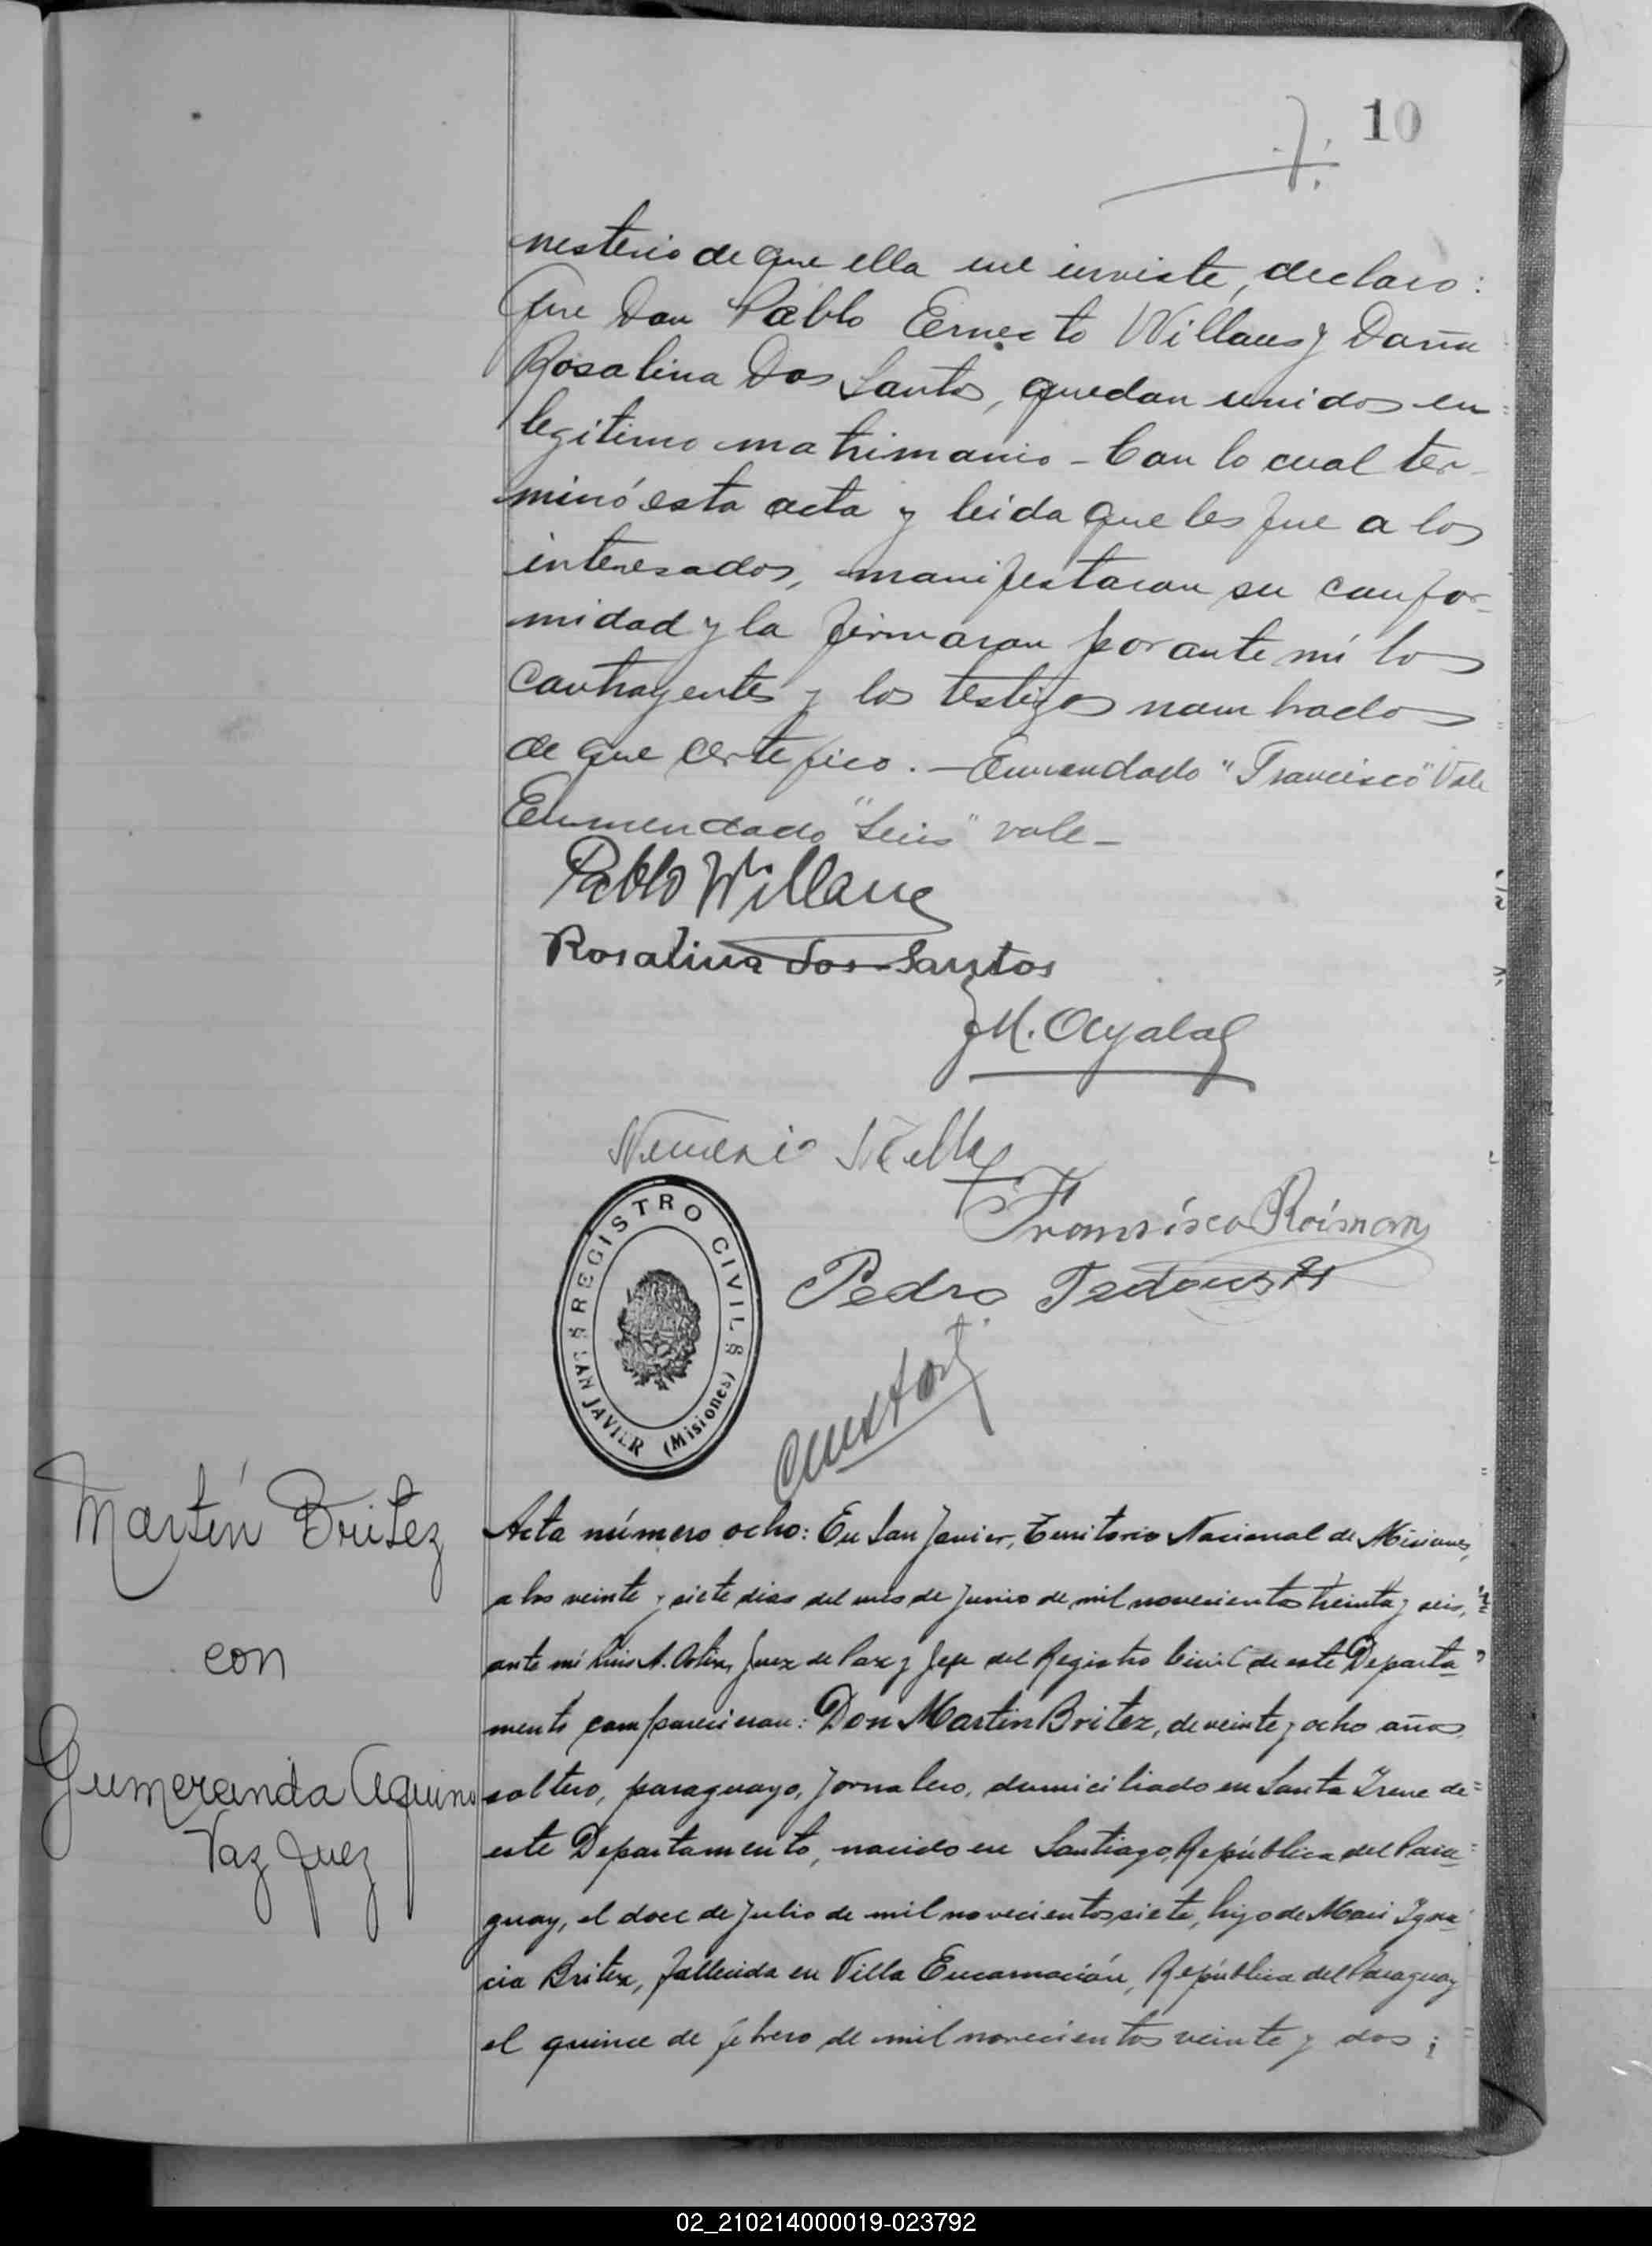 10
7.
nesterio de que ella me inviste, declaro:
Que Don Pablo Ernesto Willans y Doña
Rosalina Dos Santos, quedan unidos en
legitimo matrimonio - Con lo cual ter-
minó esta acta y leida que les fue a los
interesados, manifestaron su confor-
midad y la firmaron por ante mí los
contrayentes y los testigos nombrados
de que certifico. - Enmendado "Francisco" Vale
Enmendado "Seis" vale -
Pablo Willans
Rosalina dos Santos
J M. Ayala
Nemesio
Francisco Roisman
Pedro
REGISTRO CIVIL
SAN JAVIER (Misiones)
Martín Britez
con
Gumercinda Aquino
Vazquez
Acta número ocho: En San Javier, Territorio Nacional de Misiones,
a los veinte y siete dias del mes de Junio de mil novecientos treinta y seis,
ante mí Luis A. Juez de Paz y Jefe del Registro Civil de este Departa
mento comparecieron: Don Martin Britez, de veinte y ocho años
soltero, paraguayo, jornalero, domiciliado en Santa Irene de
este Departamento, nacido en Santiago, República del Para
guay, el doce de Julio de mil novecientos siete, hijo de Igna
cia Britez, fallecida en Villa Encarnación, República del Paraguay
el quince de febrero de mil novecientos veinte y dos;
02_210214000019-023792